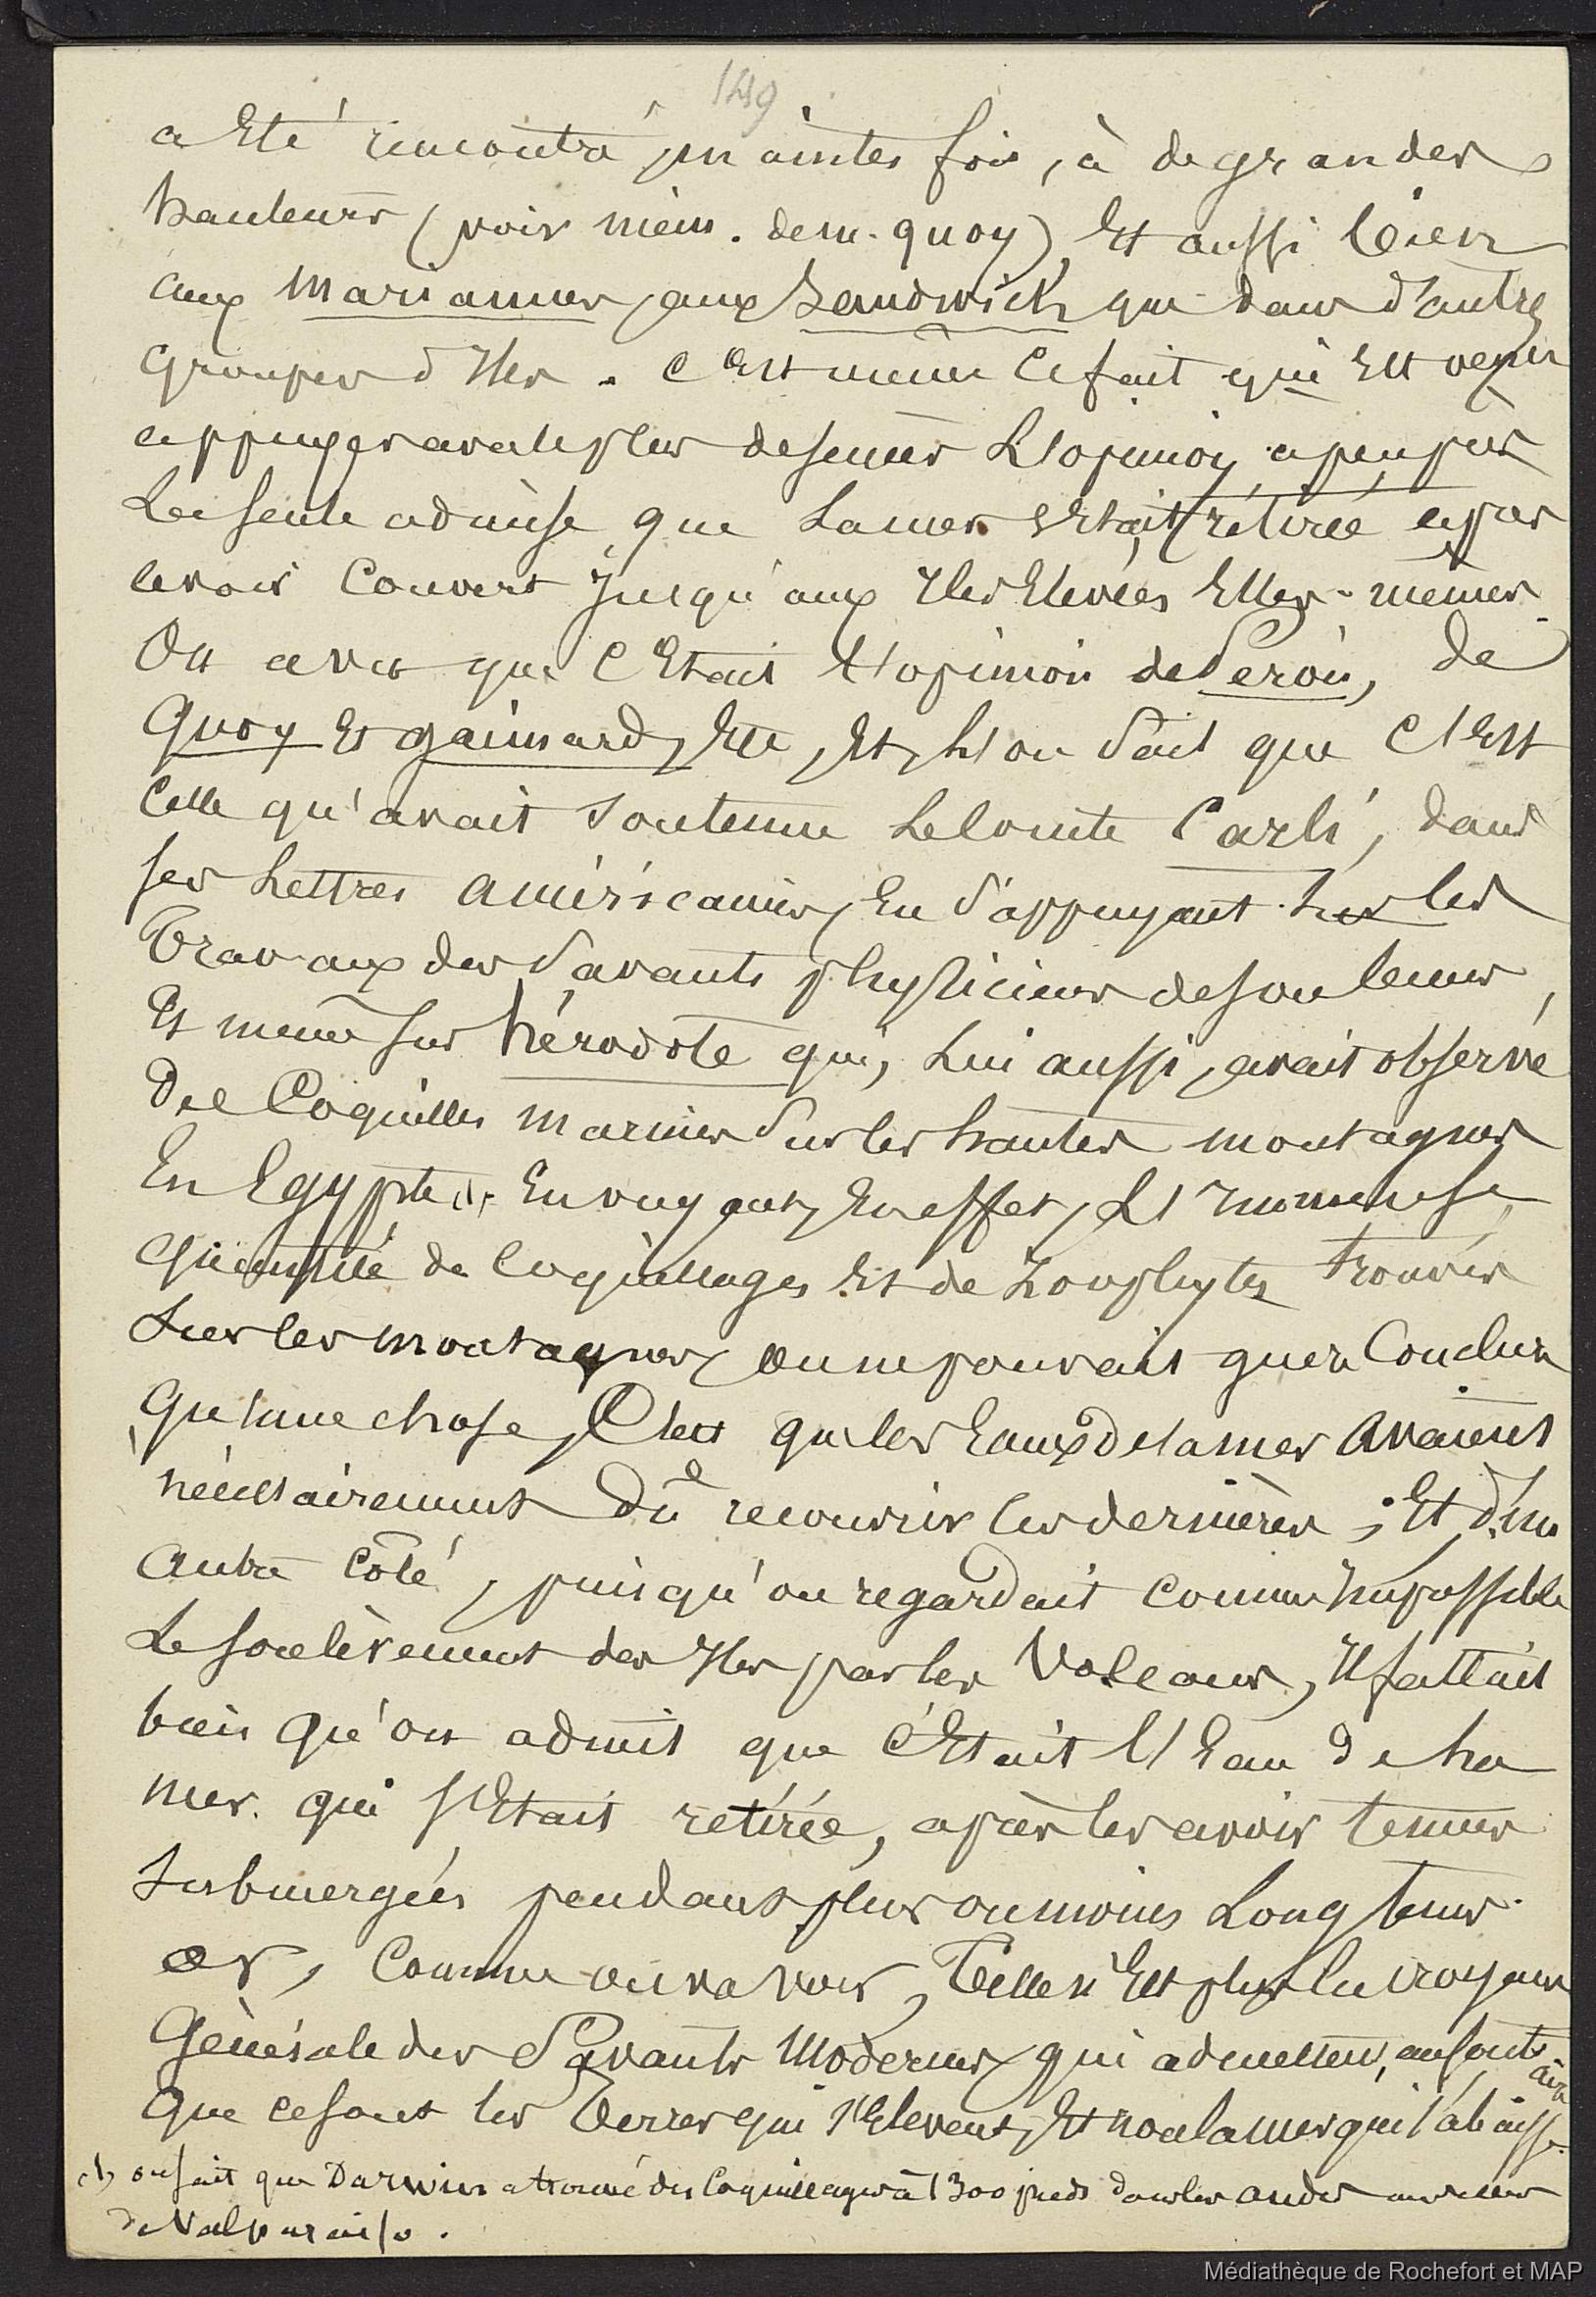 149
a Eté rencontré, maintes fois, à de grandes
hauteurs (voir mém. de m. quoy) Et aussi bien
aux mariannes, aux Sandwich que dans d'autres
Groupes d'Iles. C'Est même ce fait qui Est venu
appuyer avec le plus de force L'opinion, a peu près
La seule admise que La mer s'Etait retirée après
avoir Couvert jusqu'aux Iles Elevées Elles-mêmes.
On a vu que C'Etait L'opinion de Peron, de
Quoy Et gaimard, Etc, Et, L'on sait que C'Est
Celle qu'avait soutenue Le Comte Carli, dans
ses Lettres américaines, En s'appuyant sur les
Travaux des savants physiciens de son temps,
Et même sur hérodote qui, Lui aussi, avait observé
des Coquilles marines sur les hautes montagnes
En Egypte (1). En voyant, En effet, L'Immense
quantité de Coquillages Et de Zoophytes trouvés
sur les montagnes, on ne pouvait guère Conclure
qu'une chose, C'est que les Eaux de la mer avaient
nécessairement dû recouvrir les dernières ; Et d'un
autre côté, puisqu'on regardait comme Impossible
Le soulèvement des Iles par les Volcans, Il fallait
bien qu'on admit que c'Etait L'Eau de La
mer qui s'Etait retirée, après les avoir tenues
submergées pendant plus ou moins Long temps.
or, Comme on va voir, Telle n'Est plus la croyance
Générale des Savants Modernes, qui admettent, au contraire
que ce sont les Terres qui s'Elevent, Et non la mer qui s'abaisse.
(1) on sait que Darwin a trouvé des Coquillages à 1300 pieds dans les andes au-dessus
de Valparaiso.
Médiathèque de Rochefort et MAP